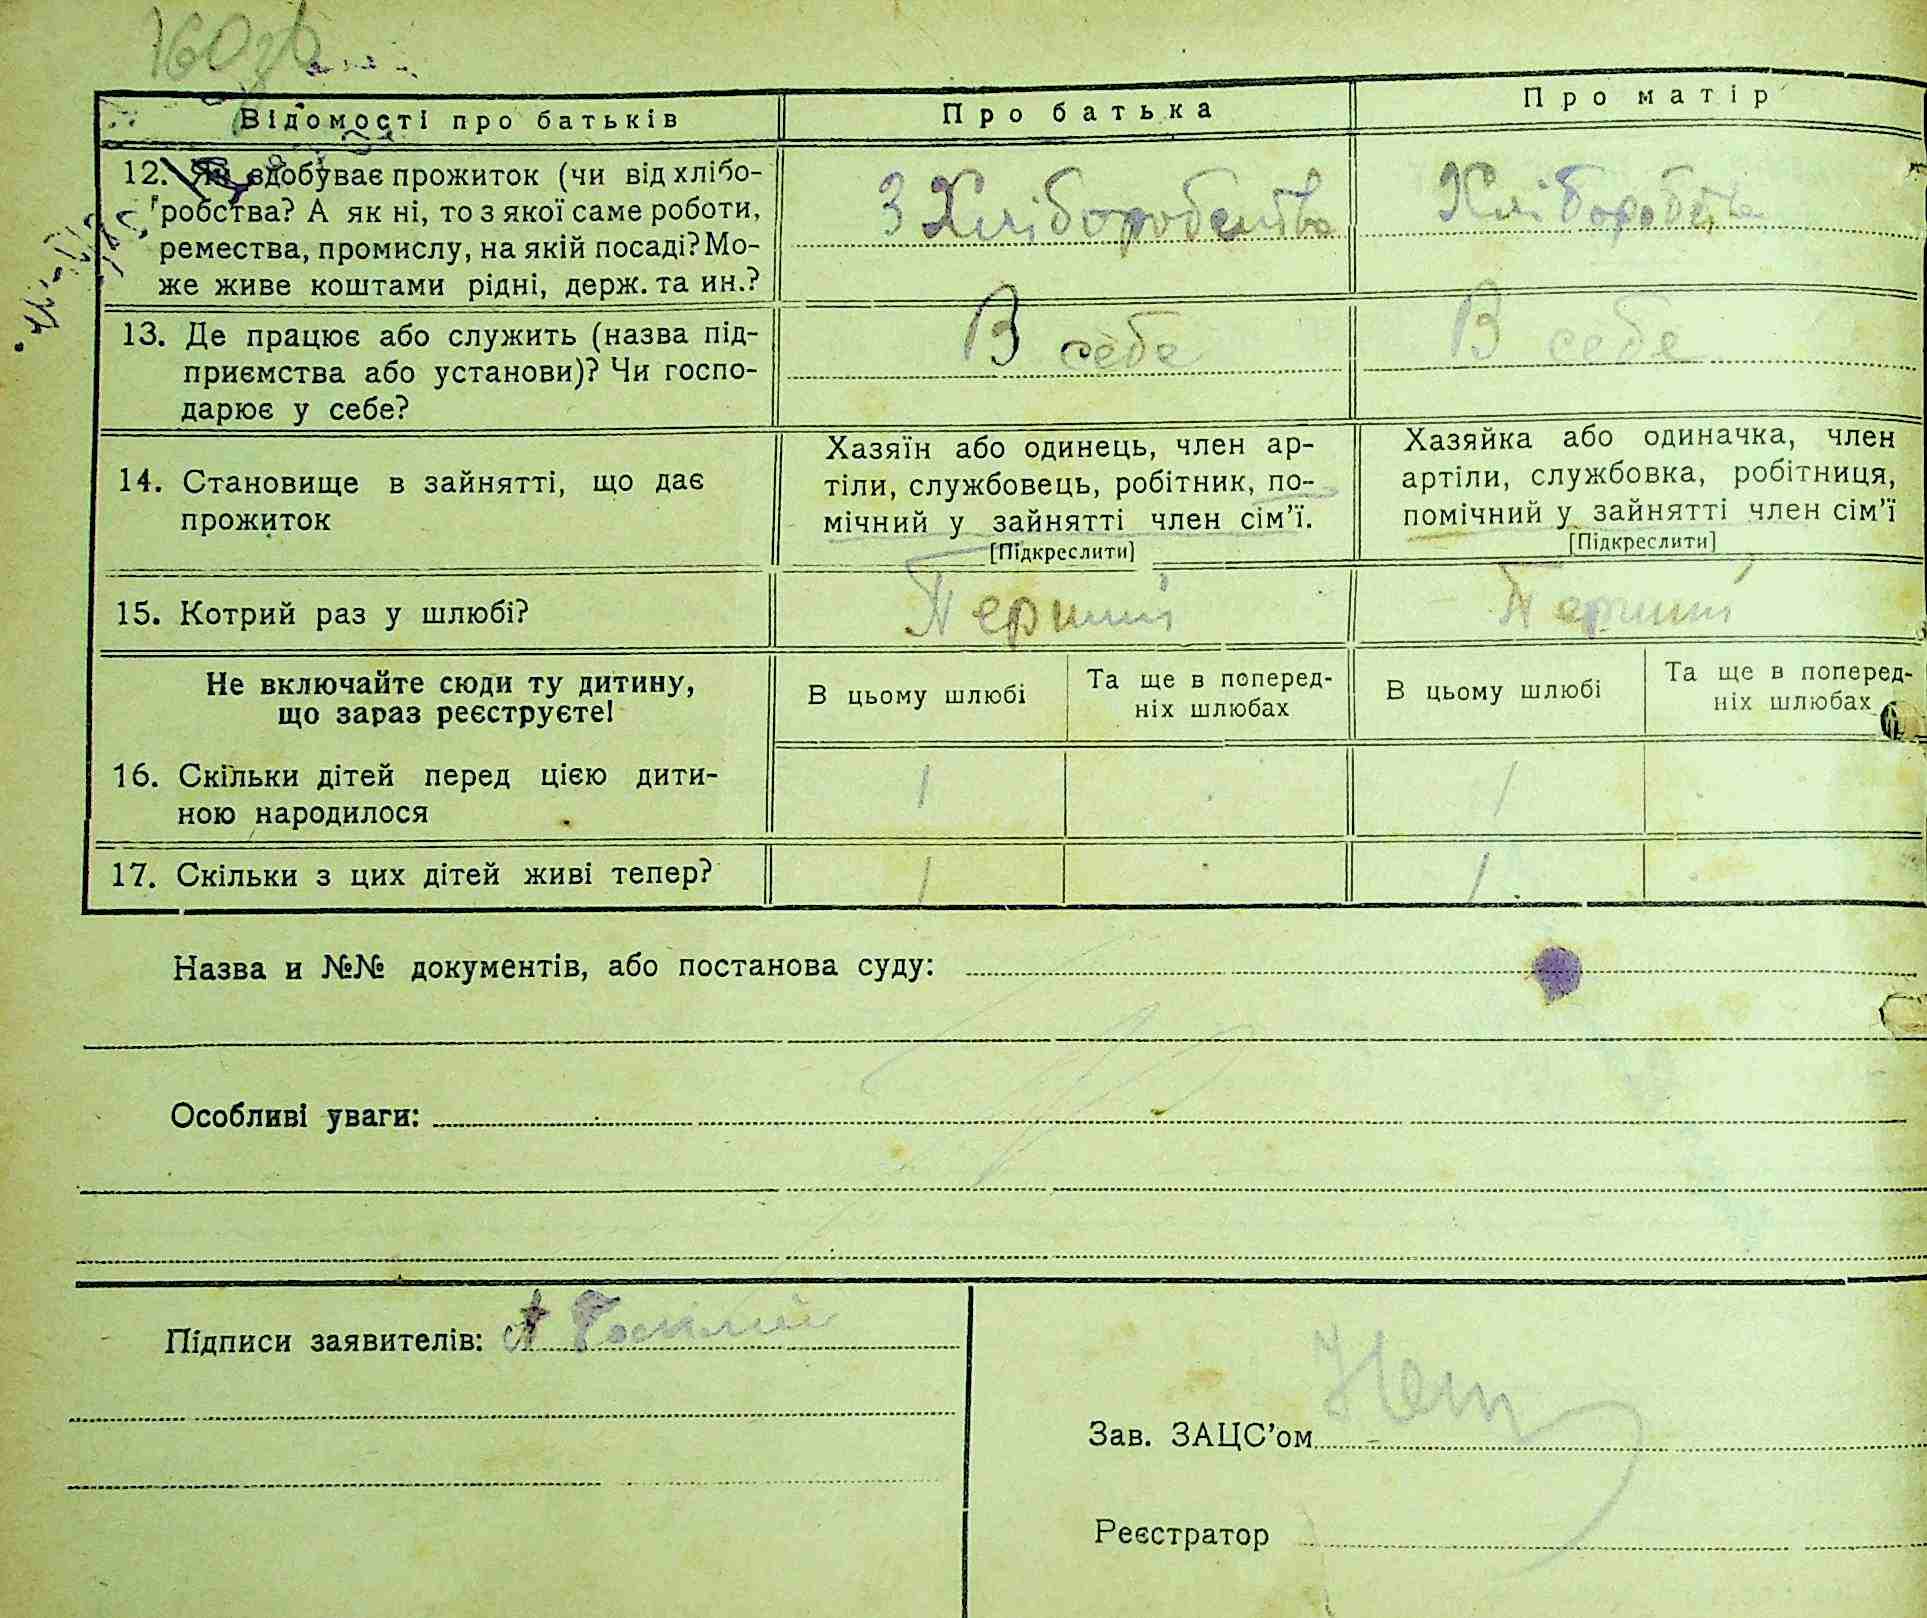 160 зв
Відомості про батьків
Про батька
Про матір
12. Як здобуває прожиток (чи від хлібо-
робства? А як ні, то з якої саме роботи,
ремества, промислу, на якій посаді? Мо-
же живе коштами рідні, держ. та ин.?
З Хліборобства
Хліборобства
13. Де працює або служить (назва під-
приємства або установи)? Чи госпо-
дарює у себе?
В себе
В себе
14. Становище в зайнятті, що дає
прожиток
Хазяїн або одинець, член ар-
тіли, службовець, робітник, по-
мічний у зайнятті член сім'ї.
[Підкреслити]
Хазяйка або одиначка, член
артіли, службовка, робітниця,
помічний у зайнятті член сім'ї
[Підкреслити]
15. Котрий раз у шлюбі?
Перший
Перший
Не включайте сюди ту дитину,
що зараз реєструєте!
В цьому шлюбі
Та ще в поперед-
ніх шлюбах
В цьому шлюбі
Та ще в поперед-
ніх шлюбах
16. Скільки дітей перед цією дити-
ною народилося
1
1
17. Скільки з цих дітей живі тепер?
1
1
Назва и №№ документів, або постанова суду:
Особливі уваги:
Підписи заявителів:
Зав. ЗАЦС'ом
Реєстратор